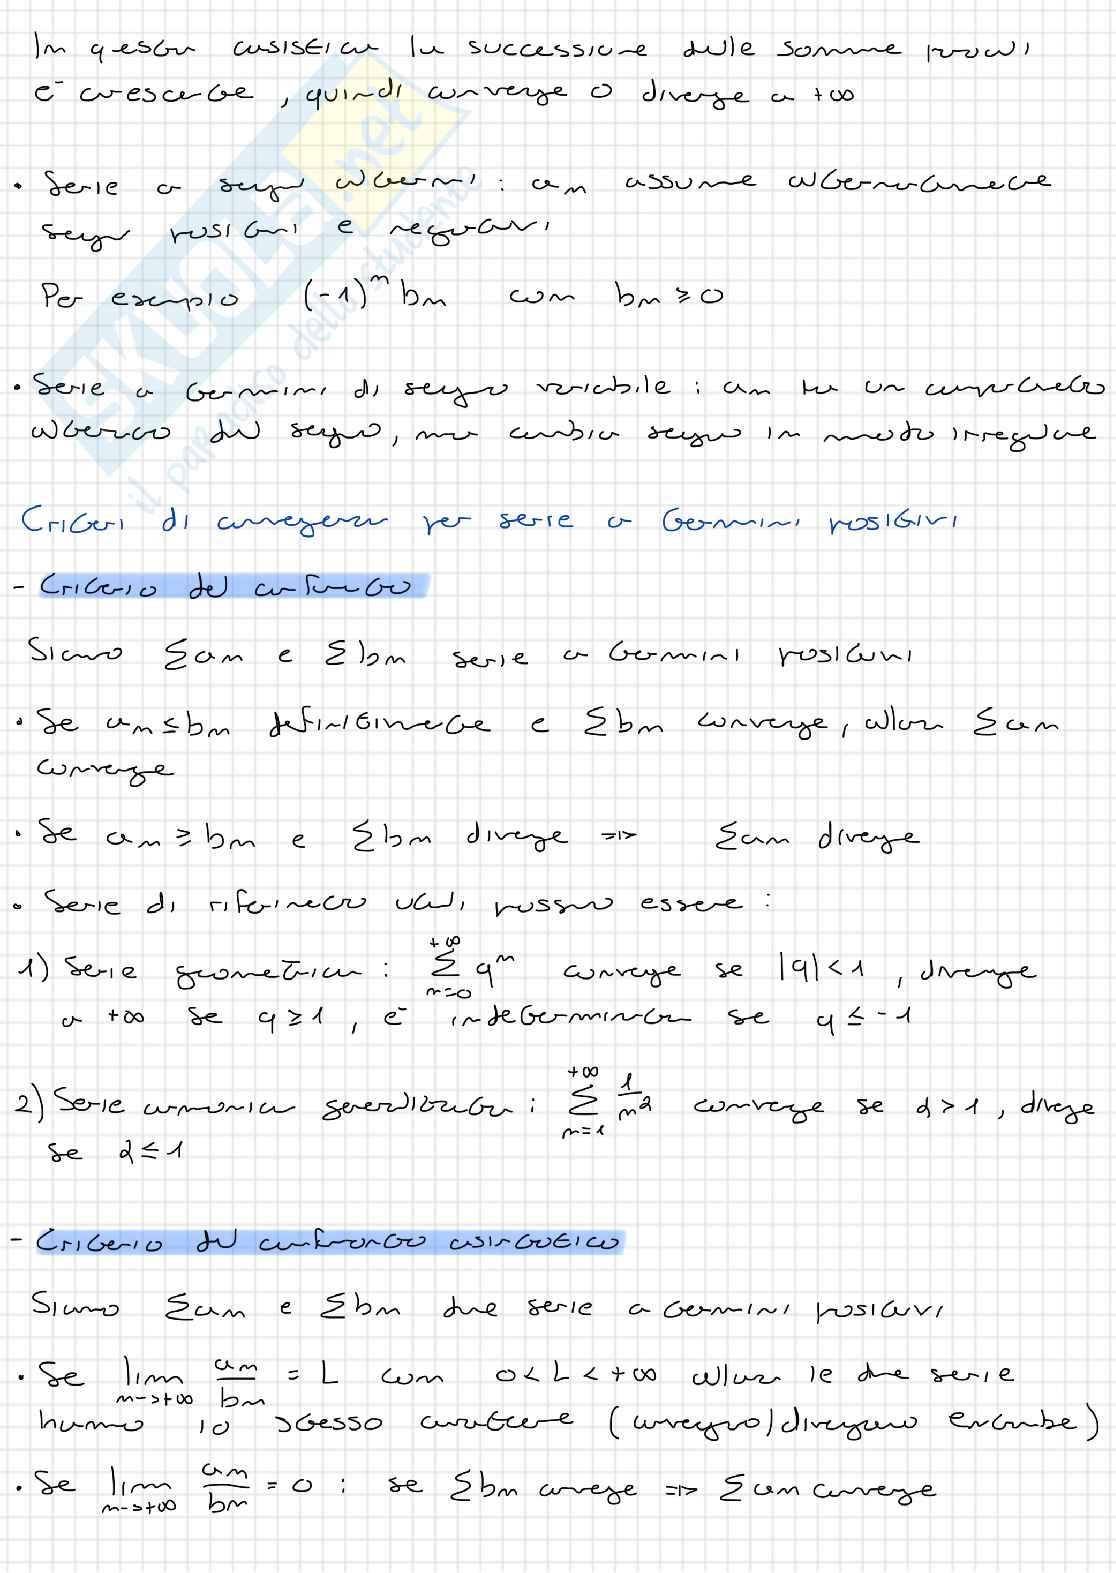 In questa casistica la successione delle somme parziali
è crescente, quindi converge o diverge a +∞
• Serie a segni alterni: an assume alternativamente
segni positivi e negativi
Per esempio (-1)^n bn con bn ≥ 0
• Serie a termini di segno variabile: an ha un comportamento
alternato del segno, ma cambia segno in modo irregolare
Criteri di convergenza per serie a termini positivi
- Criterio del confronto
Siano Σan e Σbn serie a termini positivi
• Se an ≤ bn definitivamente e Σbn converge, allora Σan
converge
• Se an ≥ bn e Σbn diverge => Σan diverge
• Serie di riferimento utili possono essere:
1) Serie geometrica: Σ_{n=0}^{+∞} q^n converge se |q| < 1, diverge
a +∞ se q ≥ 1, è indeterminata se q ≤ -1
2) Serie armonica generalizzata: Σ_{n=1}^{+∞} 1/n^α converge se α > 1, diverge
se α ≤ 1
- Criterio del confronto asintotico
Siano Σan e Σbn due serie a termini positivi
• Se lim_{n->+∞} an/bn = L con 0 < L < +∞ allora le due serie
hanno lo stesso carattere (convergono/divergono entrambe)
• Se lim_{n->+∞} an/bn = 0: se Σbn converge => Σan converge
SKUOLA.net
il paradiso dello studente